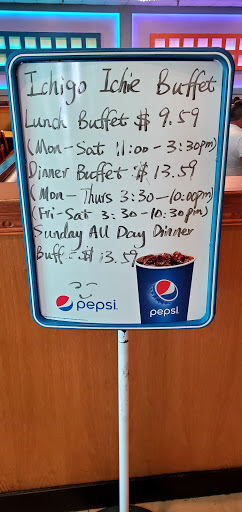 Ichigo Ichie Buffet
Lunch Buffet $ 9.59
(Mon-Sat 11:00 - 3:30pm)
Dinner Buffet $ 13.59
(Mon - Thurs 3:30-10:00pm)
(Fri-Sat 3:30-10:30pm)
Sunday All Day Dinner
Buff $ 13.59
pepsi
pepsi